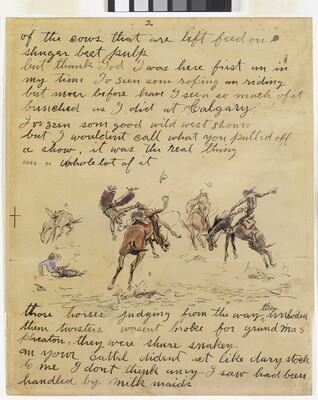 2
of the cows that are left feed on
shuger beet pulp
but thank God I was here first an in
my time Iv seen som roping an riding
but never before have I seen so much of it
bunched as I did at Calgary
Ive seen som good wild west shows
but I wouldent call what you pulled off
a show, it was the real thing
an a whole lot of it
those horses judging from the way they unloded
them twisters wasent broke for grand mas
pheaton, they were shure snakey
an your cattel dident act like dary stock
to me I dont think any I saw had been
handled by milk maids